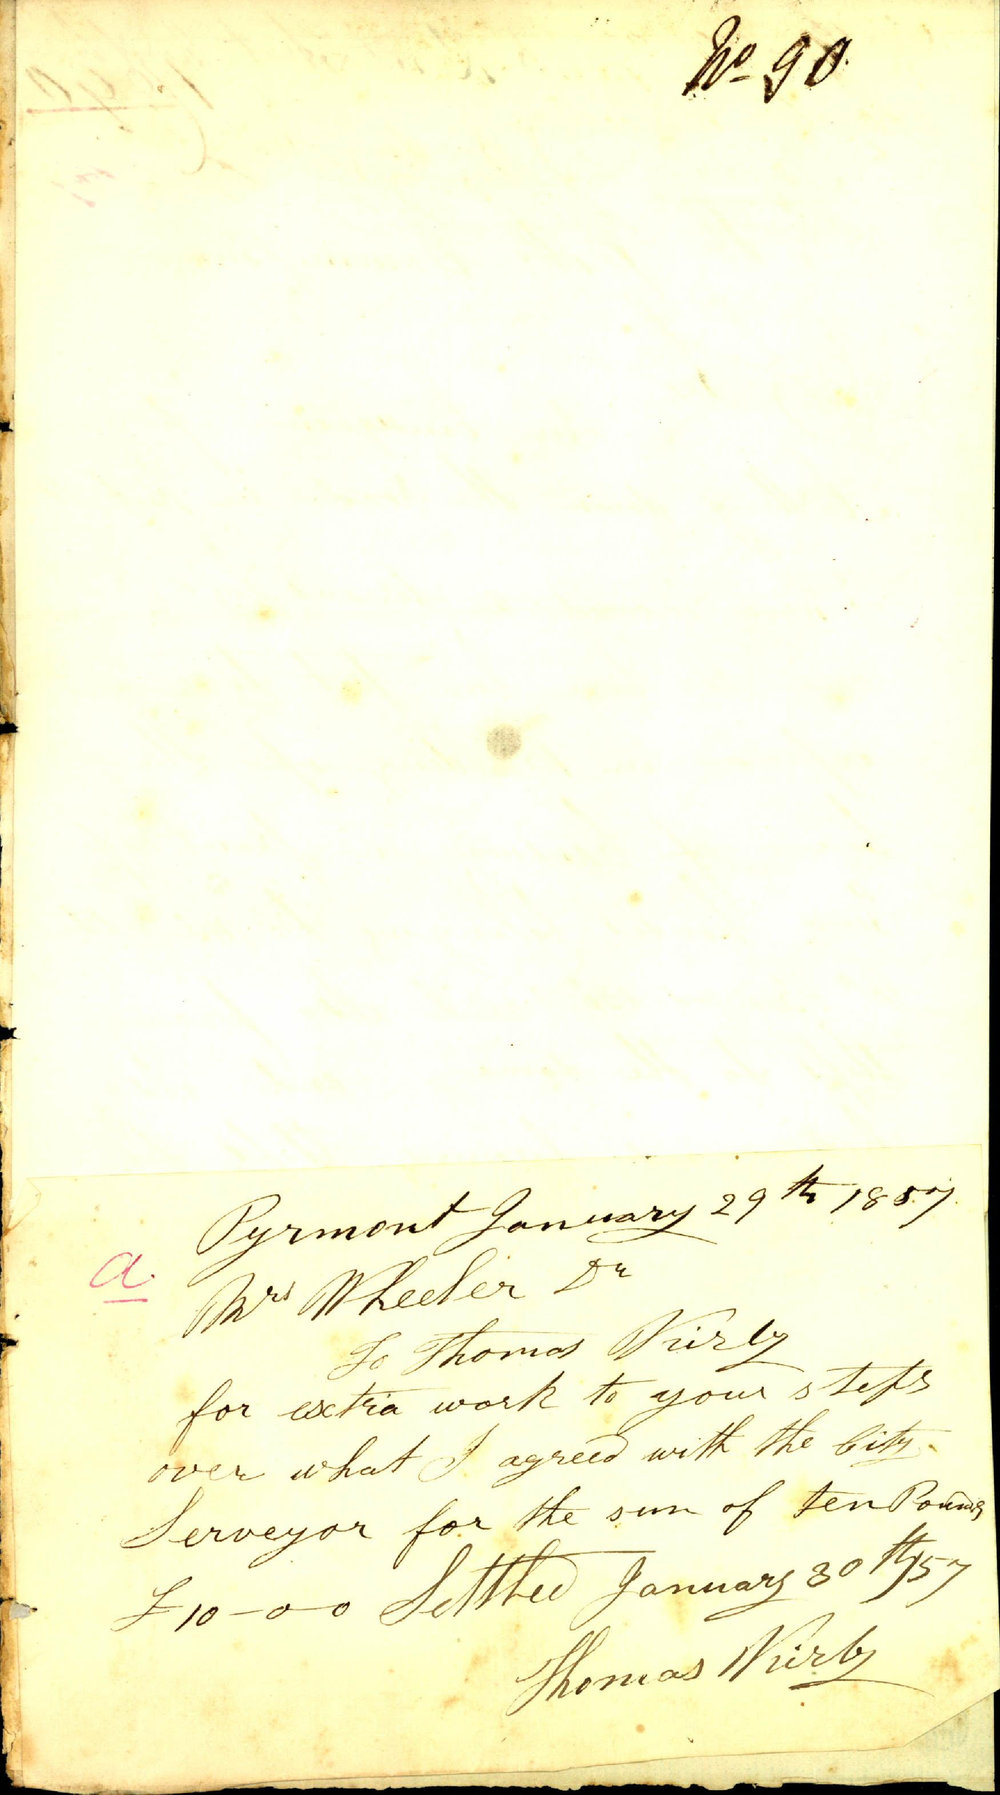 No 90
Pyrmont January 29th 1857
a.
Mrs Wheeler Dr
To Thomas Kirby
for extra work to your steps
over what I agreed with the City
Serveyor for the sum of ten Pounds
£10-0-0 Settled January 30th/57
Thomas Kirby